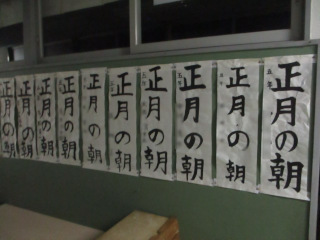 正月の朝
正月の朝
正月の朝
正月の朝
正月の朝
正月の朝
正月の朝
正月の朝
正月の朝
正月の朝